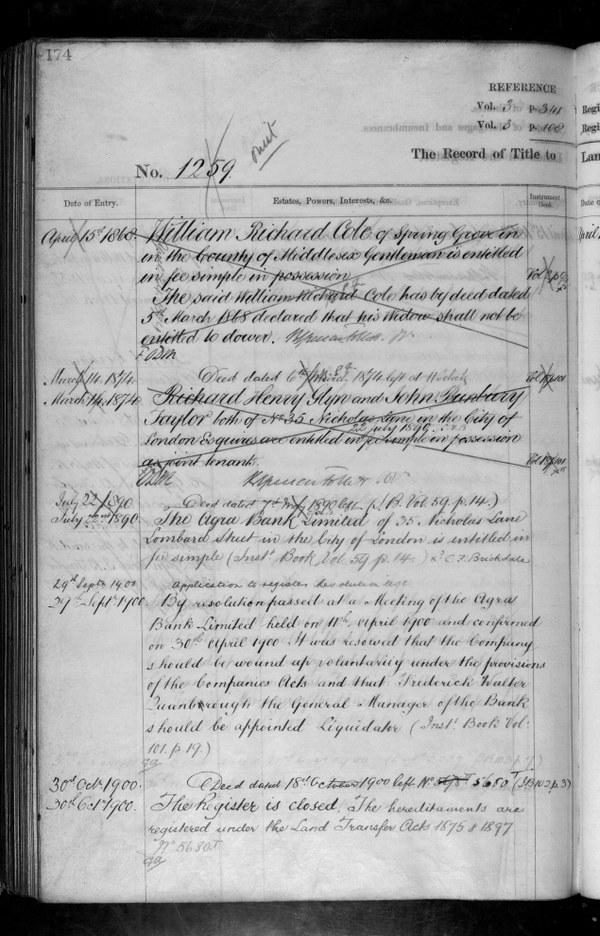 174
REFERENCE
Vol. 3 p. 341
Vol. 3 p. 168
omit
No. 1259
The Record of Title to
Date of Entry.
Estates, Powers, Interests, &c.
Instrument Book.
April 15th 1868.
William Richard Cole of Spring Grove in
in the County of Middlesex Gentleman is entitled
in fee simple in possession
The said William Richard Cole has by deed dated
5th March 1868 declared that his Widow shall not be
entitled to dower.
March 14. 1874.
Deed dated 6th March 1874 left at
March 14. 1874
Richard Henry Glyn and John Bunbury
Taylor both of No 35 Nicholas Lane in the City of
22 July 1890
London Esquires are entitled in fee simple in possession
as joint tenants.
July 22 1890
Deed dated 7th July 1890 left (I.B. Vol. 59. p. 14.)
July 22nd 1890
The Agra Bank Limited of 35 Nicholas Lane
Lombard Street in the City of London is entitled in
fee simple (Inst. Book Vol. 59 p. 14.) C. F. Brickdale
29th Septr 1900
Application to register resolution
29th Septr 1900.
By resolution passed at a Meeting of the Agra
Bank Limited held on 11th April 1900 and confirmed
on 30th April 1900 It was resolved that the Company
should be wound up voluntarily under the provisions
of the Companies Acts and that Frederick Walter
Quanbrough the General Manager of the Bank
should be appointed Liquidator (Inst. Book Vol:
101. p. 19.)
30th Octr 1900.
Deed dated 18th October 1900 left No 5680T (IB 102 p. 3)
30th Octr 1900.
The Register is closed, The hereditaments are
registered under the Land Transfer Acts 1875 & 1897
No 5680T